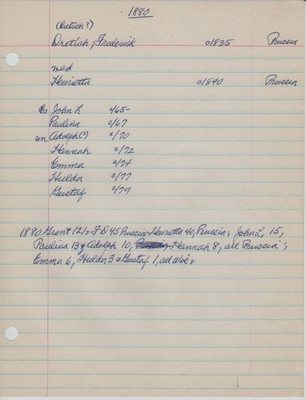 1880
(Dutsch?)
Drotiah Frederick o1835 Prussia
med
Henrietta o1840 Prussia
ch John L o/65-
Paulina o/67
Adolph(?) o/70
Hannah o/72
Emma o/74
Hulda o/77
Gustaf o/79
1880 Grant 12/2 F D 45 Prussia; Henrietta 40, Prussia; John L, 15,
Paulina 13 & Adolph 10, Hannah 8, all Prussia;
Emma 6, Hulda 3 & Gustaf 1, all Wis;